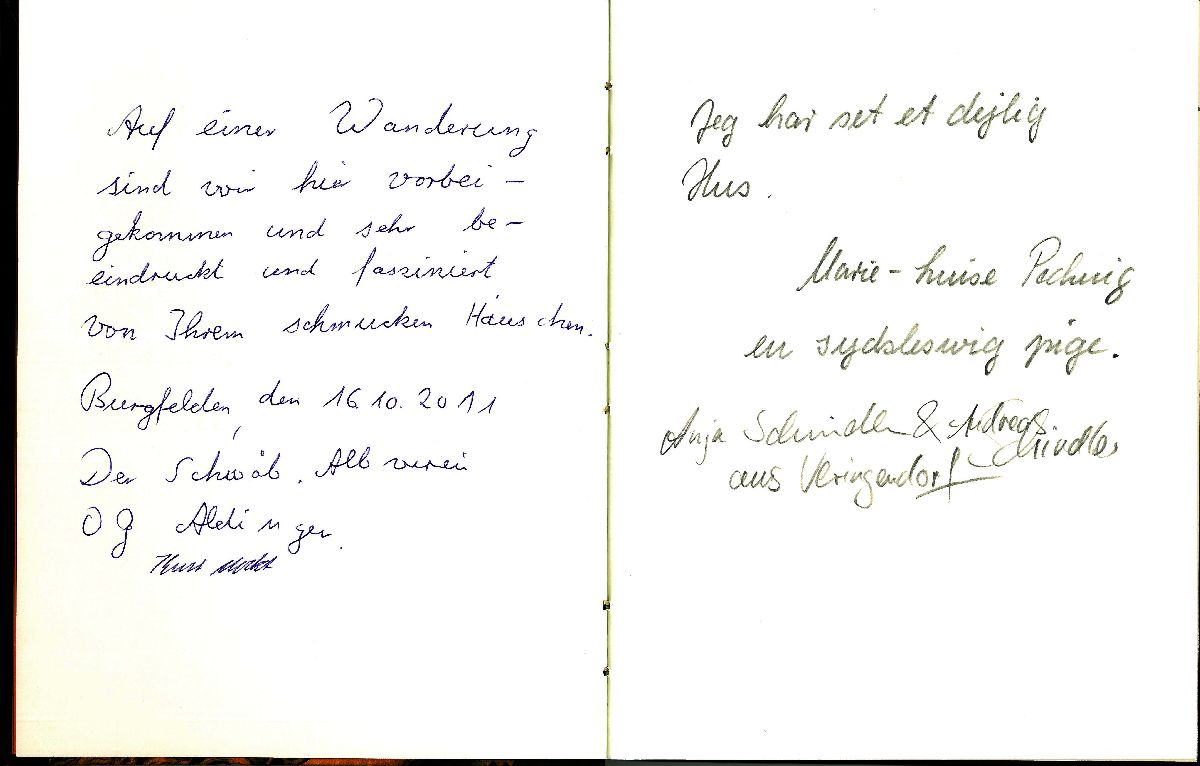 Auf einer Wanderung
sind wir hier vorbei-
gekommen und sehr be-
eindruckt und fasziniert
von Ihrem schmucken Häuschen.
Burgfelden, den 16.10.2011
Der Schwäb. Albverein
OG Aldingen.
Jeg har set et dejlig
Hus.
Marie-Luise
en sydsleswig pige.
Anja Schindler & Andreas
Schindler
aus Veringendorf